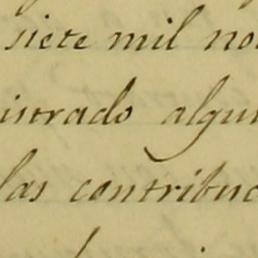 siete mil no
istrado algu
las contribuc